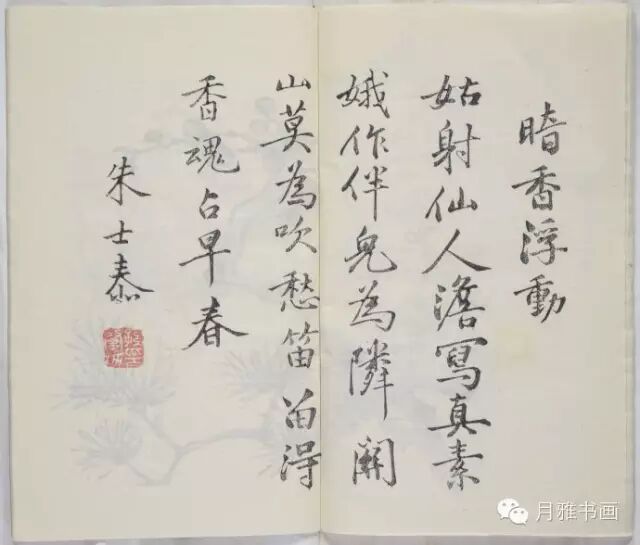 暗香浮動
姑射仙人澹寫真素
娥作伴皃為隣關
山莫為吹愁笛畱得
香魂占早春
朱士泰
月雅书画